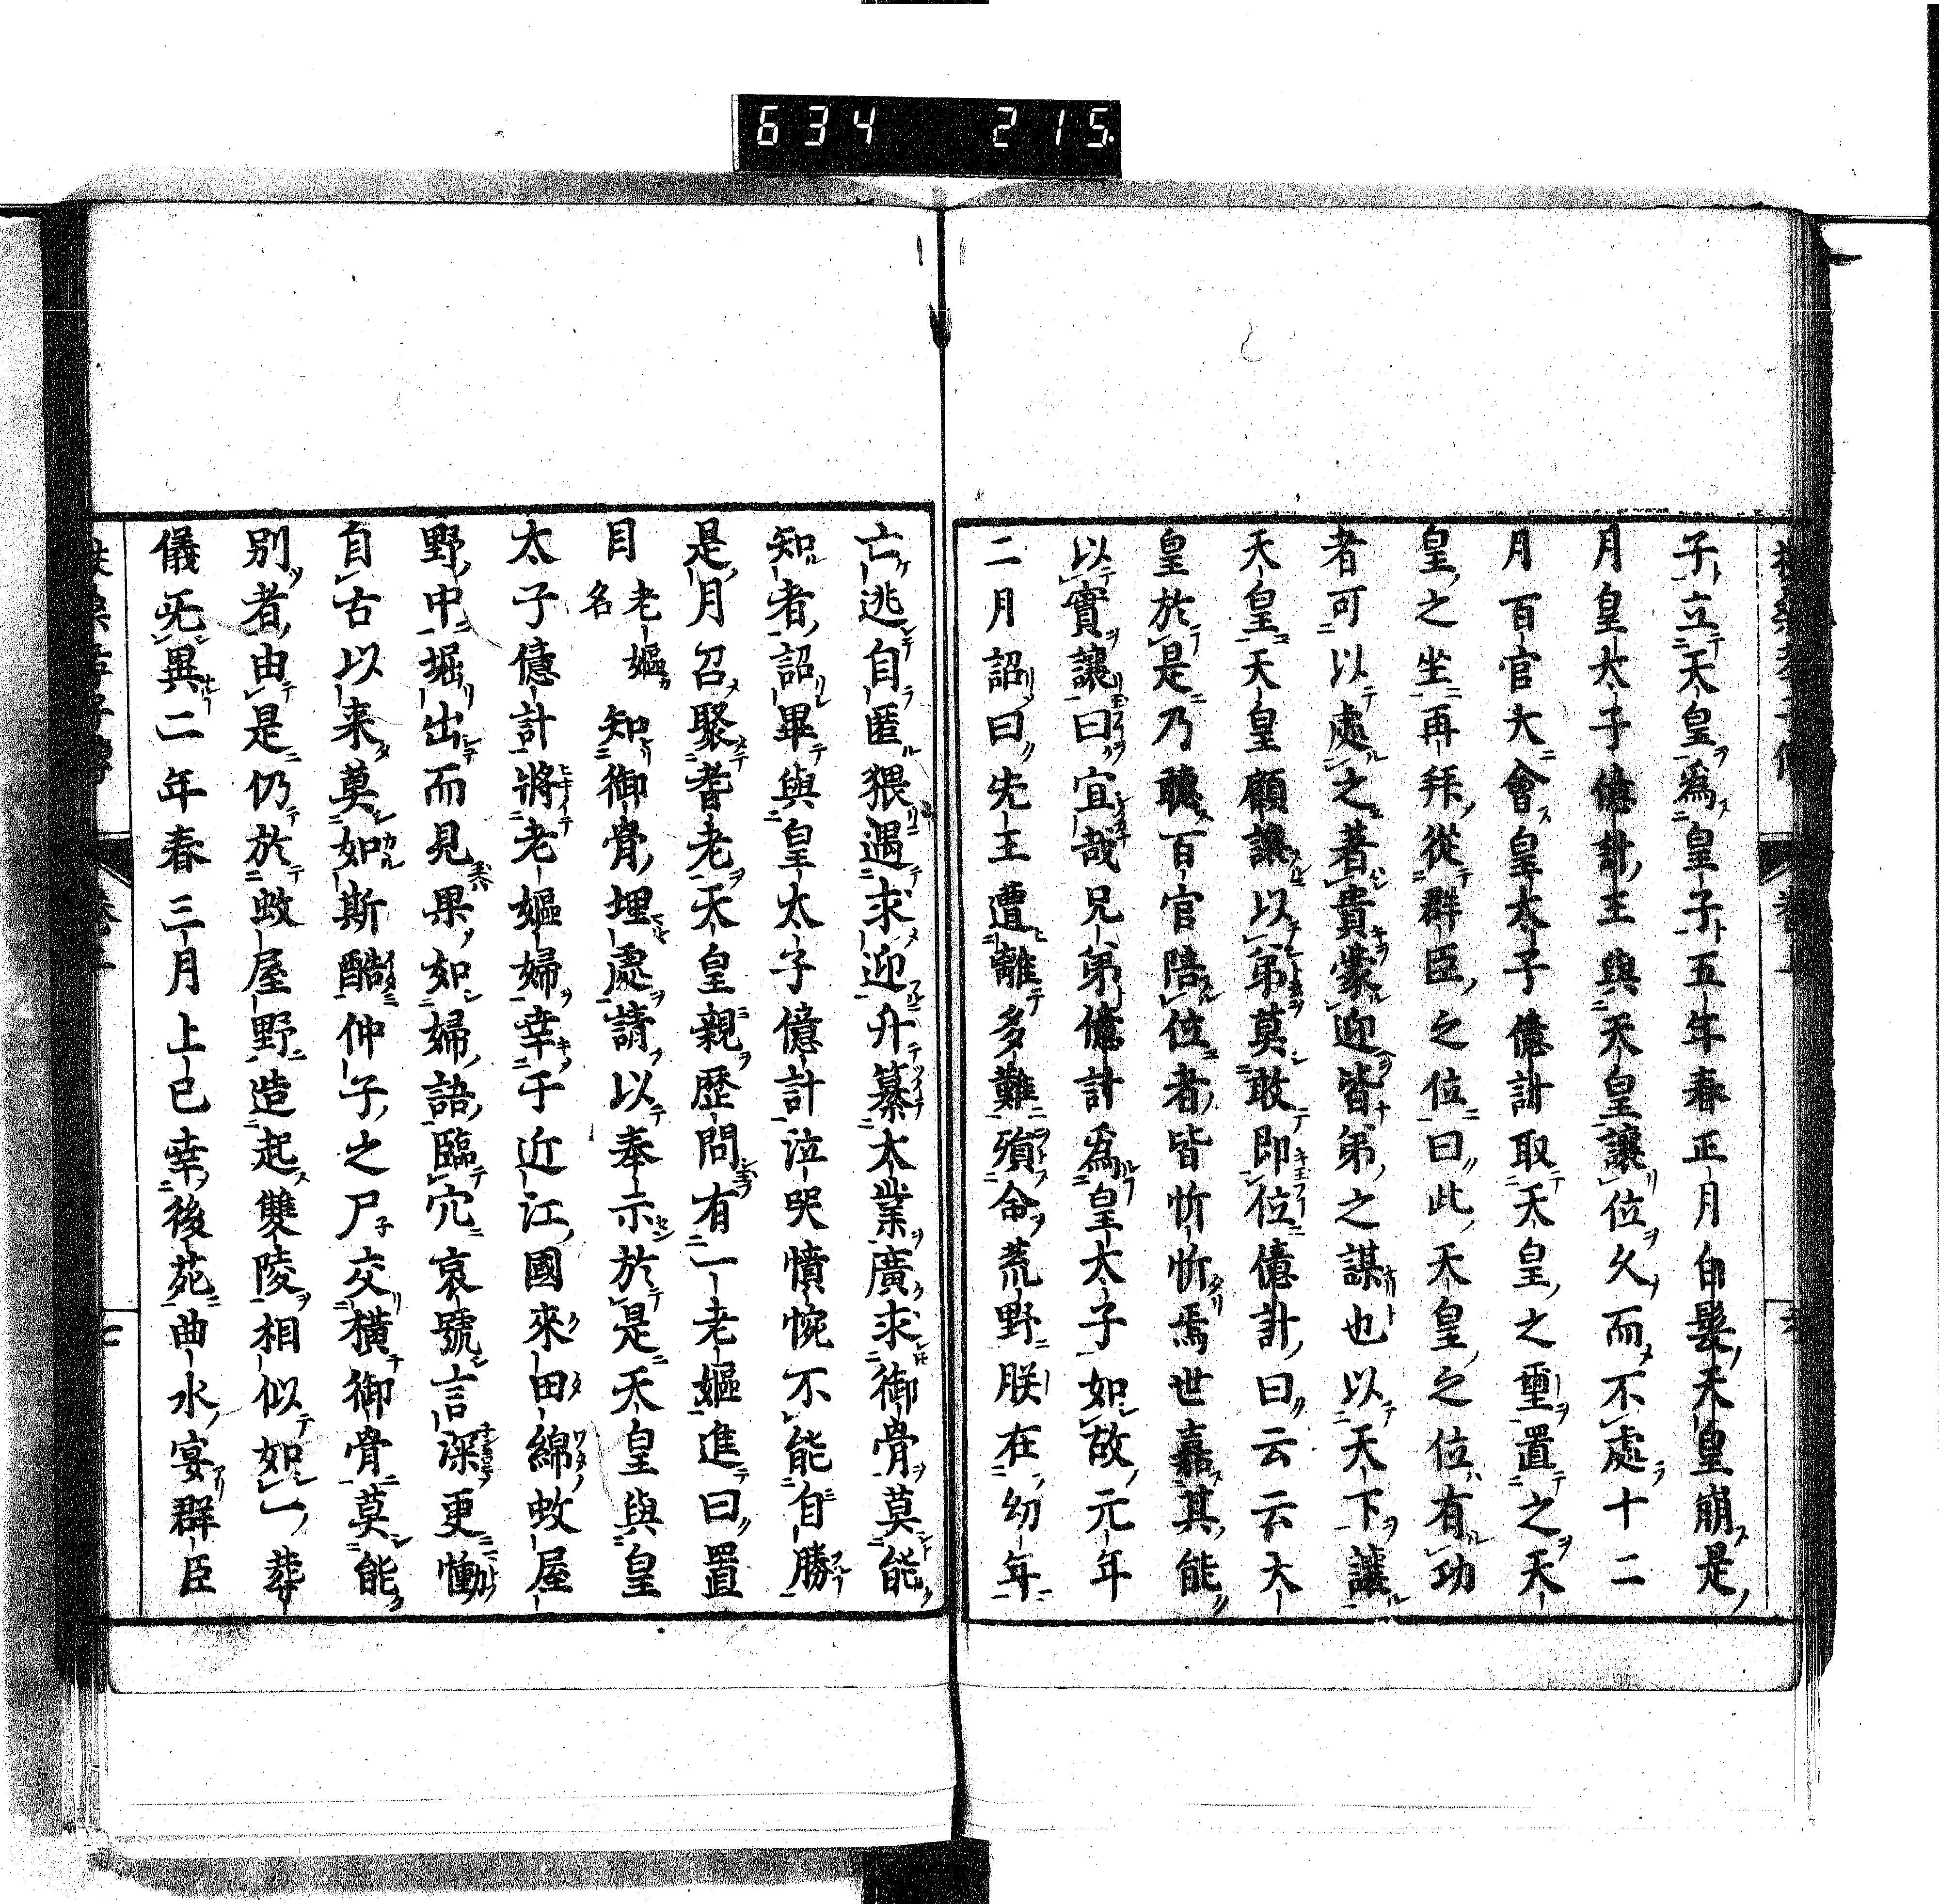 634 215
子立天皇為皇子五年春正月白髮天皇崩是
月皇太子億計王與天皇讓位久而不處十二
月百官大會皇太子億計取天皇之璽置之天
皇之坐再拜從群臣之位曰此天皇之位有功
者可以處之著貴蒙迎皆弟之謀也以天下讓
天皇天皇顧讓以弟莫敢即位億計曰云云大
皇於是乃聽百官陪位者皆忻忻焉世嘉其能
以實讓曰宜哉兄弟億計為皇太子如故元年
二月詔曰先王遭離多難殞命荒野朕在幼年
亡逃自匿猥遇求迎升纂大業廣求御骨莫能
知者詔畢與皇太子億計泣哭憤惋不能自勝
是月召聚耆老天皇親歷問有一老嫗進曰置
目老嫗名知御骨埋處請以奉示於是天皇與皇
太子億計將老嫗婦幸于近江國來田綿蚊屋
野中堀出而見果如婦語臨穴哀號言深更慟
自古以来莫如斯酷仲子之尸交橫御骨莫能
別者由是仍於蚊屋野造起雙陵相似如一葬
儀无異二年春三月上巳幸後苑曲水宴群臣